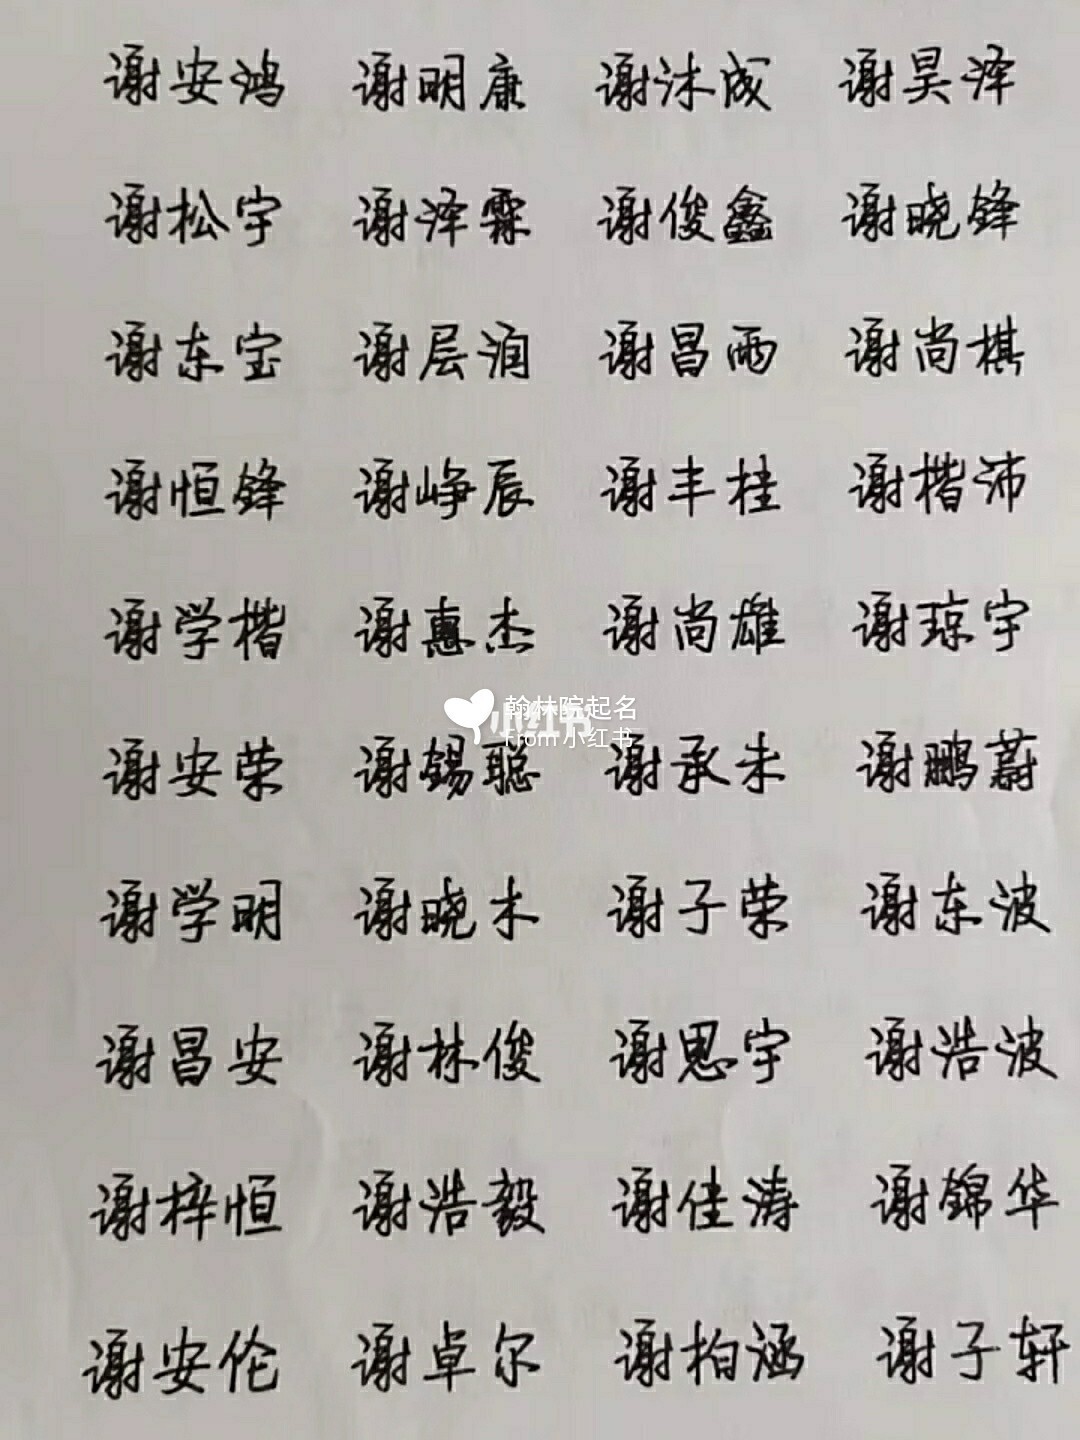 谢安鸿 谢明康 谢沐成 谢昊泽
谢松宇 谢泽霖 谢俊鑫 谢晓锋
谢东宝 谢层润 谢昌雨 谢尚棋
谢恒锋 谢峥辰 谢丰桂 谢楷沛
谢学楷 谢惠杰 谢尚雄 谢琼宇
翰林院起名
小红书
from 小红书
谢安荣 谢锡聪 谢承未 谢鹏蔚
谢学明 谢晓木 谢子荣 谢东波
谢昌安 谢林俊 谢思宇 谢浩波
谢梓恒 谢浩毅 谢佳涛 谢锦华
谢安伦 谢卓尔 谢柏涵 谢子轩